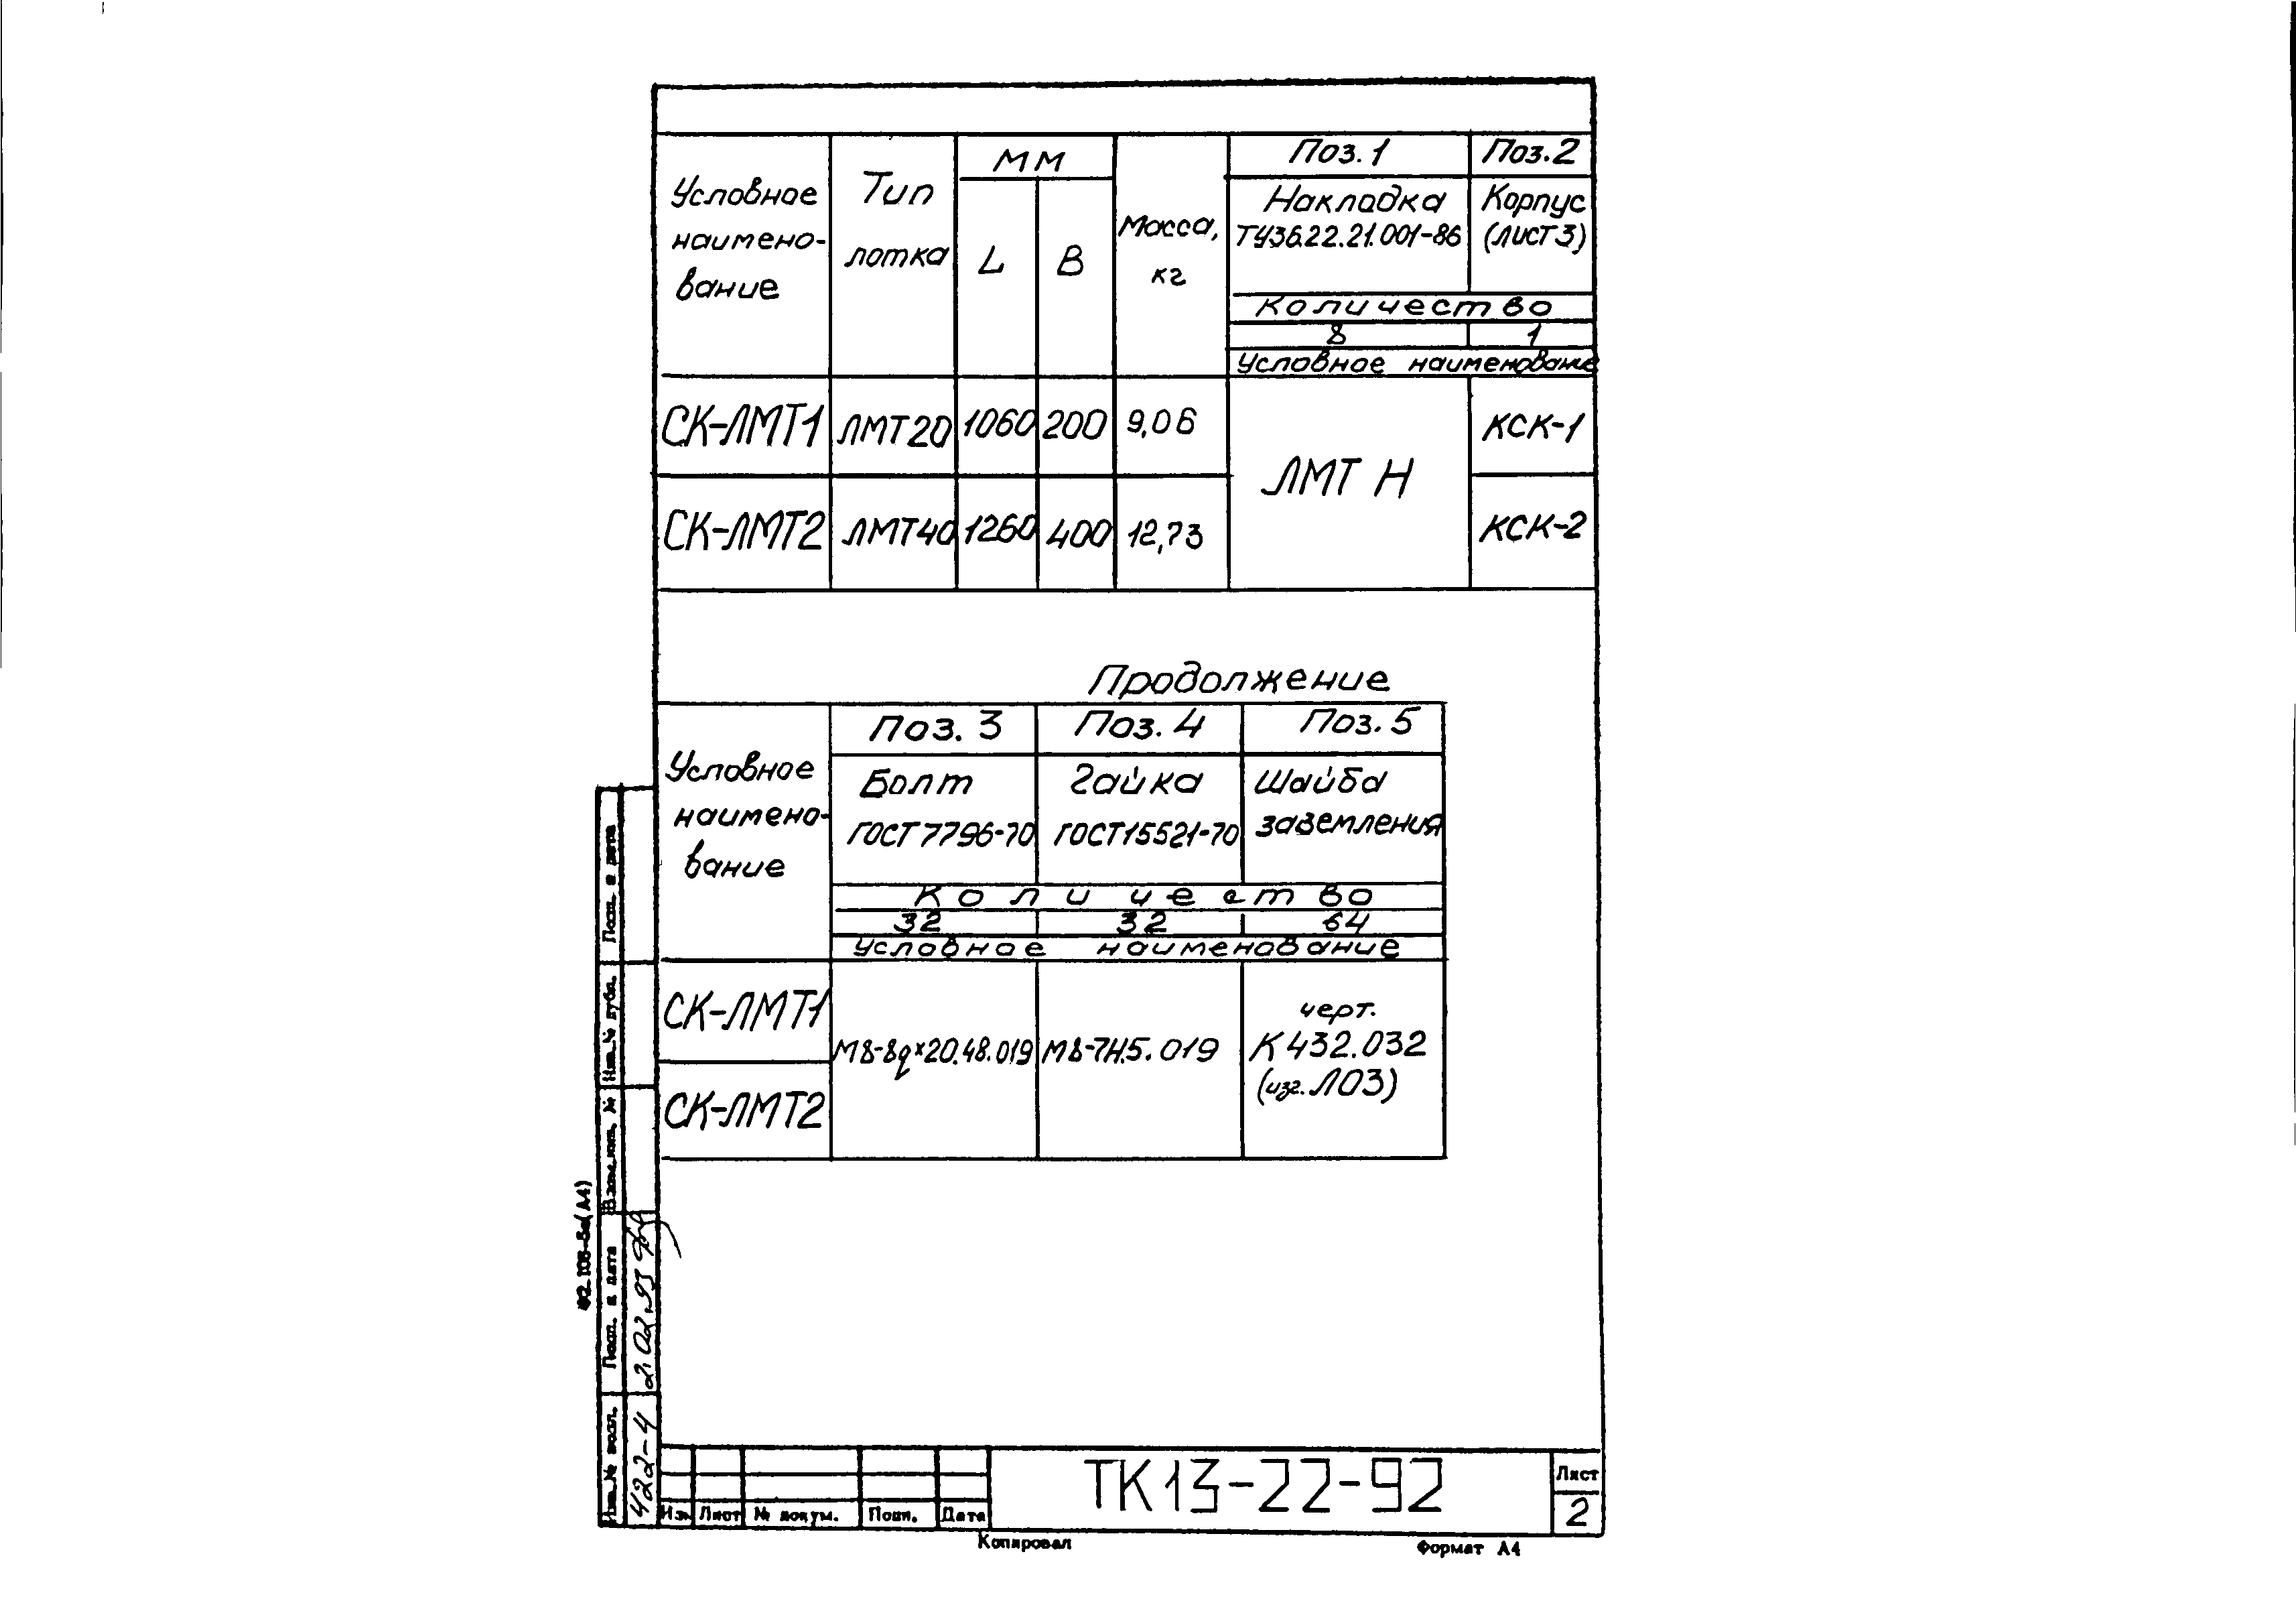 Условное наимено-вание
Тип лотка
мм
L
В
Масса, кг
Поз. 1
Поз. 2
Накладка
ТУ36.22.21.001-86
Корпус
(лист 3)
Количество
8
1
Условное наименование
СК-ЛМТ1
ЛМТ20
1060
200
9,06
ЛМТ Н
КСК-1
СК-ЛМТ2
ЛМТ40
1260
400
12,73
КСК-2
Продолжение
Условное наимено-вание
Поз. 3
Поз. 4
Поз. 5
Болт
ГОСТ 7796-70
Гайка
ГОСТ 15521-70
Шайба
заземления
Количество
32
32
64
Условное наименование
СК-ЛМТ1
СК-ЛМТ2
М8-8q×20.48.019
М8-7Н.5.019
черт.
К 432.032
(изг. ЛОЗ)
Подп. и дата
Инв. № дубл.
Взам. инв. №
Подп. и дата
2.02.93
Инв. № подл.
422-4
Изм
Лист
№ докум.
Подп.
Дата
ТК13-22-92
Лист
2
Копировал
Формат А4